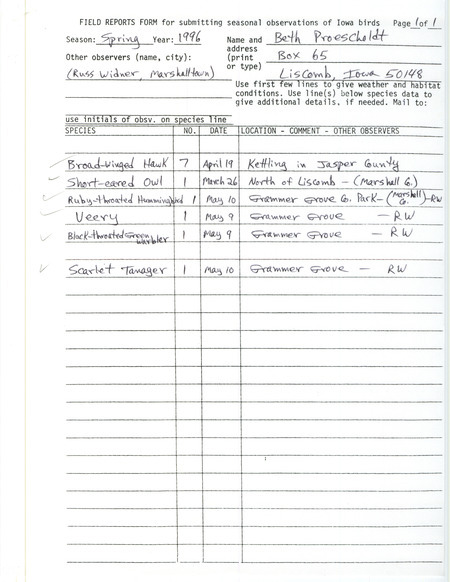 FIELD REPORTS FORM for submitting seasonal observations of Iowa birds Page 1 of 1
Season: Spring Year: 1996 Name and Beth Proescholdt
Other observers (name, city): address (print or type) Box 65
(Russ Widner, Marshalltown) Liscomb, Iowa 50148
Use first few lines to give weather and habitat
conditions. Use line(s) below species data to
give additional details, if needed. Mail to:
use initials of obsv. on species line
SPECIES NO. DATE LOCATION - COMMENT - OTHER OBSERVERS
Broad-winged Hawk 7 April 19 Kettling in Jasper County
Short-eared Owl 1 March 26 North of Liscomb - (Marshall Co.)
Ruby-throated Hummingbird 1 May 10 Grammer Grove Co. Park - (Marshall Co.) - RW
Veery 1 May 9 Grammer Grove - RW
Black-throated Green Warbler 1 May 9 Grammer Grove - RW
Scarlet Tanager 1 May 10 Grammer Grove - RW